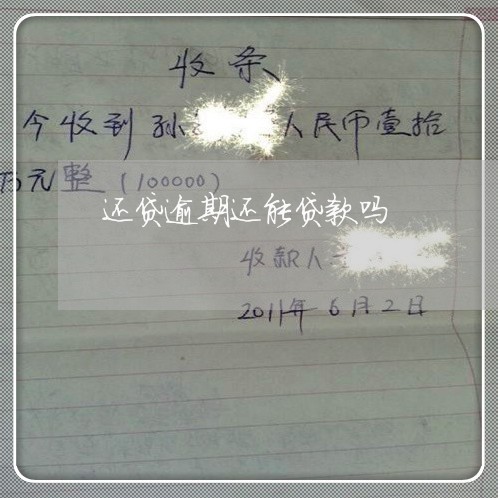 收条
今收到孙 人民币壹拾
万元整（100000）
还贷逾期还能贷款吗
收款人
2011年6月2日